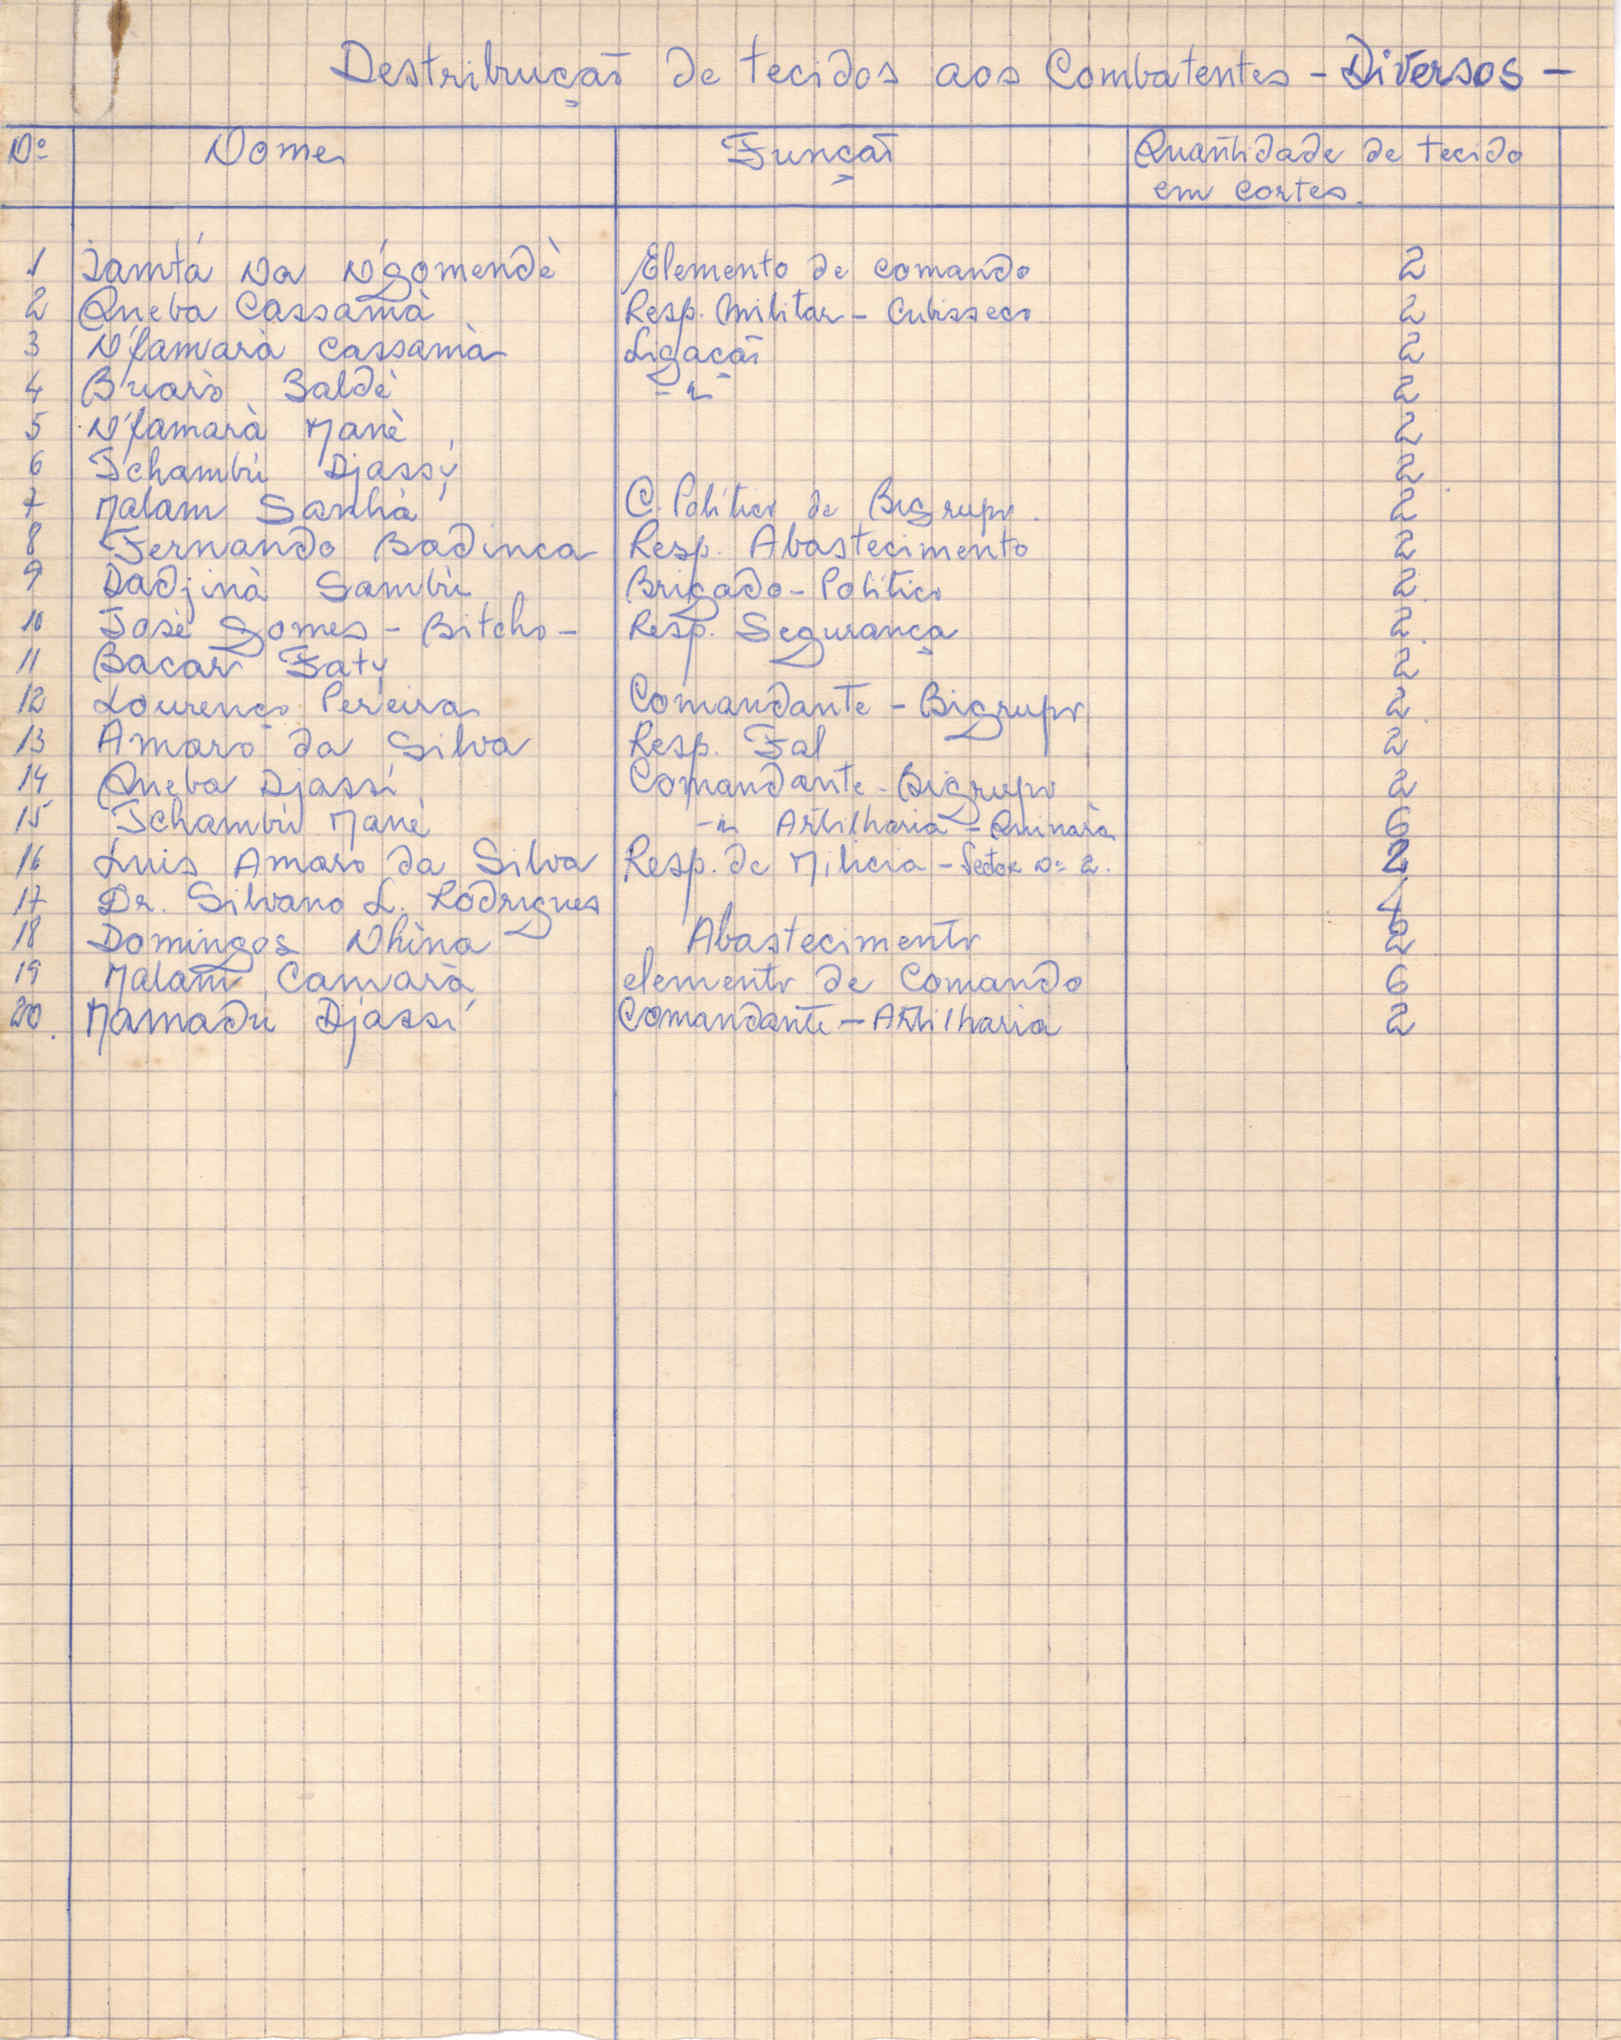 Destribuçaõ de tecidos aos Combatentes - Diversos -
Nº Nome Funçaõ Quantidade de tecido
em cortes.
1 Iamtá Na N'gomendè Elemento de comando 2
2 Queba Cassamà Resp. Militar - Cubisseco 2
3 N'famarà Cassamà Ligaçaõ 2
4 Buarò Baldè - " - 2
5 N'famarà Manè 2
6 Tchambù Djassí 2
7 Malam Sanhà C. Político de Bigrupo. 2
8 Fernando Badinca Resp. Abastecimento 2
9 Dadjinà Sambù Brigado - Político 2
10 José Gomes - Bitcho - Resp. Segurança 2
11 Bacar Faty 2
12 Lourenço Pereira Comandante - Bigrupo 2
13 Amaro da Silva Resp. Fal 2
14 Queba Djassí Comandante - Bigrupo 2
15 Tchambù Manè - " Artilharia - Quinara 6
16 Luis Amaro da Silva Resp. de Milicia - Sector Nº 2. 2
17 Dr. Silvano L. Rodrigues 4
18 Domingos Nhina Abastecimento 2
19 Malam Camarà elemento de Comando 6
20. Mamadú Djassí Comandante - Artilharia 2